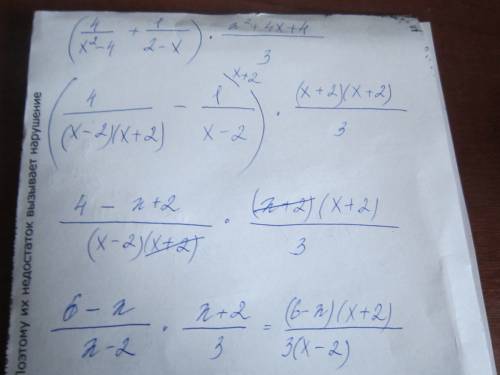 (4/(x²-4) + 1/(2-x)) · (x²+4x+4)/3
(4/((x-2)(x+2)) - 1/(x-2)) x+2 · ((x+2)(x+2))/3
(4 - x+2)/((x-2)(x+2)) · ((x+2)(x+2))/3
(6-x)/(x-2) · (x+2)/3 = ((6-x)(x+2))/(3(x-2))
Поэтому их недостаток вызывает нарушение